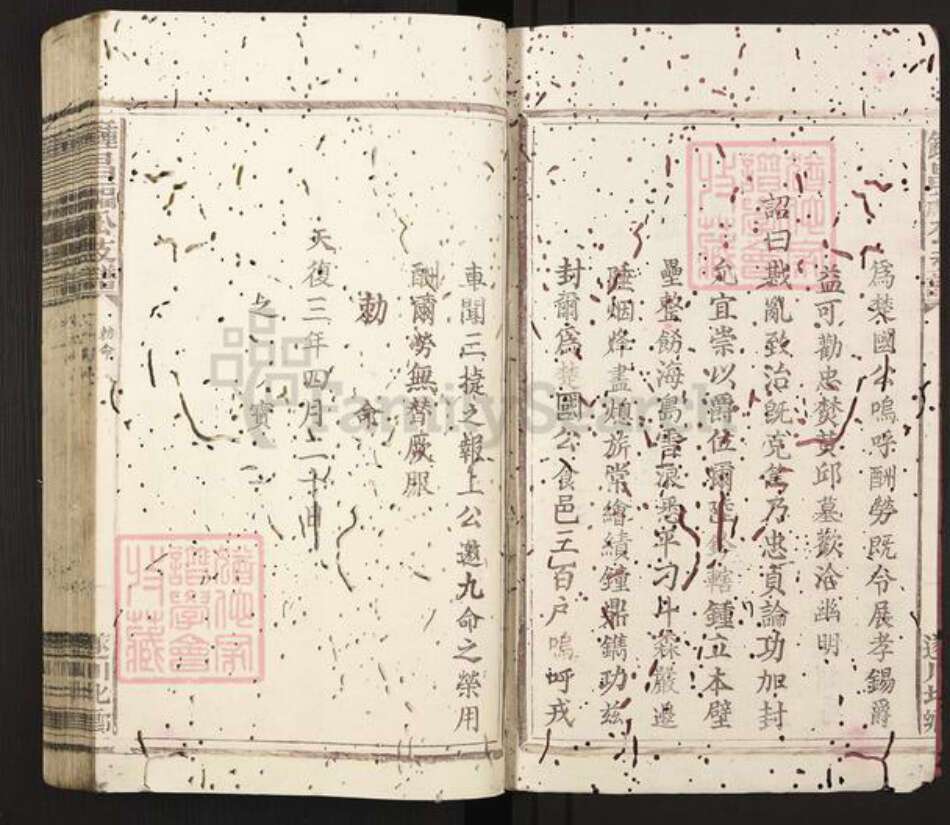 為楚國公嗚呼酬勞既令展孝錫爵
益可勸忠焚黃邱墓歡洽幽明
詔曰戡亂致治旣克篤乃忠貞論功加封
允宜崇以爵位爾鍾立本壁
壘整飭海島雪浪悉平刁斗森嚴邊
陲烟烽盡煩旂常繪績鐘鼎鐫功茲
封爾為楚國公食邑三百戶嗚呼戎
車聞三捷之報上公邀九命之榮用
酬爾勞無替厥服
勅命
天復三年四月二十日
之寶
勅命
遂川北鄉
譜學會
收藏
FamilySearch